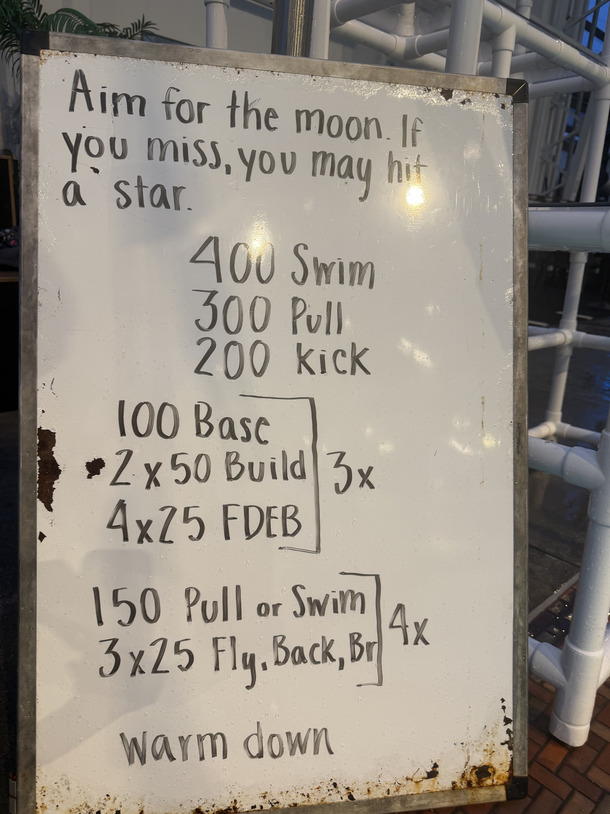 Aim for the moon. If
you miss, you may hit
a star.
400 Swim
300 Pull
200 kick
100 Base
2 x 50 Build
4x25 FDEB
3x
150 Pull or Swim
3x25 Fly, Back, Br
4x
Warm down